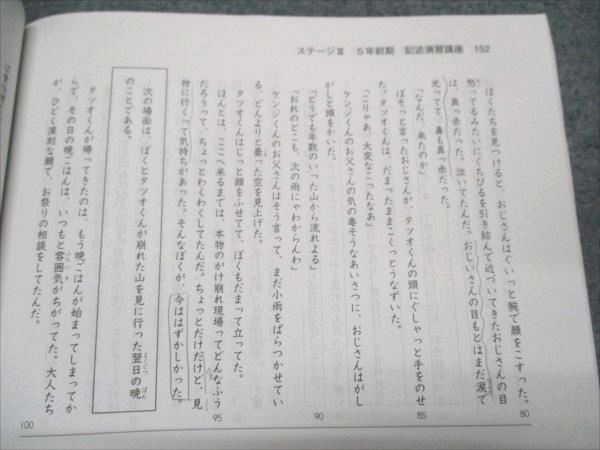 ステージⅢ　5年前期　記述演習講座　152
ぼくたちを見つけると、おじさんはぐいっと腕で顔をこすった。
怒ってるみたいにくちびるを引き結んで近づいてきたおじさんの目
は、真っ赤だった。泣いてたんだ。おじいさんの目もとはまだ涙で
光ってて、鼻も真っ赤だった。
「なんだ、来たのか」
ぼそっと言ったおじさんが、タツオくんの頭にぐしゃっと手をのせ
た。タツオくんは、だまったままこくっとうなずいた。
「こりゃあ、大変なこったなあ」
ケンジくんのお父さんの気の毒そうなあいさつに、おじさんはがし
がしと頭をかいた。
「どうでも年数のいった山から流れよる」
「おれのとこも、次の雨にゃわからんわ」
ケンジくんのお父さんはそう言って、まだ小雨をぱらつかせてい
る、どんよりと曇った空を見上げた。
タツオくんはじっと顔をふせてて、ぼくもだまって立ってた。
ほんとは、ここへ来るまでは、本物のがけ崩れ現場ってどんなふう
だろうって、ちょっとわくわくしてたんだ。ちょっとだけだけど、見
物に行くって気持ちがあった。そんなぼくが、今ははずかしかった。
次の場面は、ぼくとタツオくんが崩れた山を見に行った翌日の晩
のことである。
よくじつ
ばん
タツオくんが帰ってきたのは、もう晩ごはんが始まってしまってか
らで、その日の晩ごはんは、いつもと雰囲気がちがってた。大人たち
が、ひどく深刻な顔で、お祭りの相談をしてたんだ。
80
85
90
95
100